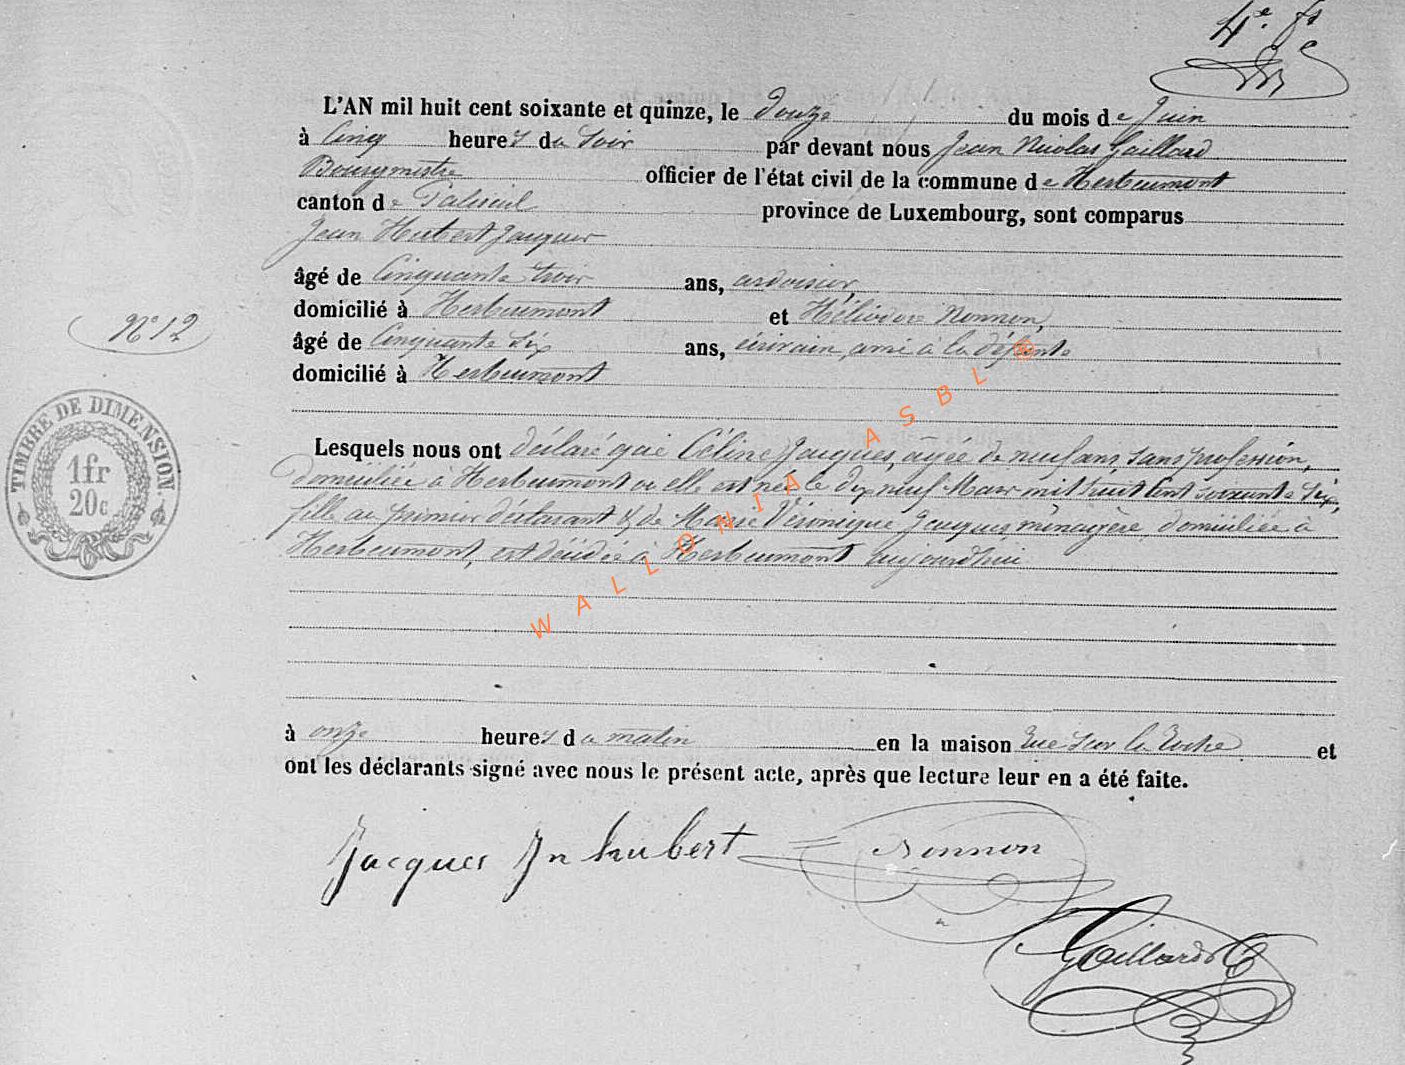 4e. f
L'AN mil huit cent soixante et quinze, le douze du mois de Juin
à Cinq heures du soir par devant nous Jean Nicolas Gaillard
Bourgmestre officier de l'état civil de la commune de Herbeumont
canton de Paliseul province de Luxembourg, sont comparus
Jean Hubert Jacques
âgé de Cinquante trois ans, ardoisier,
domicilié à Herbeumont et Héliodore Nonnon,
âgé de Cinquante six ans, écrivain, ami à la défunte
domicilié à Herbeumont
N° 12
TIMBRE DE DIMENSION.
1fr
20c
Lesquels nous ont déclaré que Céline Jacques, agée de neuf ans, sans profession,
domiciliée à Herbeumont où elle est née le dix neuf Mars mil huit cent soixante six,
fille au premier déclarant & de Marie Véronique Jacques, ménagère, domiciliée à
Herbeumont, est décédée à Herbeumont aujourd'hui
WALLONIA ASBL ®
à onze heures du matin en la maison rue sur la Roche et
ont les déclarants signé avec nous le présent acte, après que lecture leur en a été faite.
Jacques Jn hubert
Nonnon
Gaillard